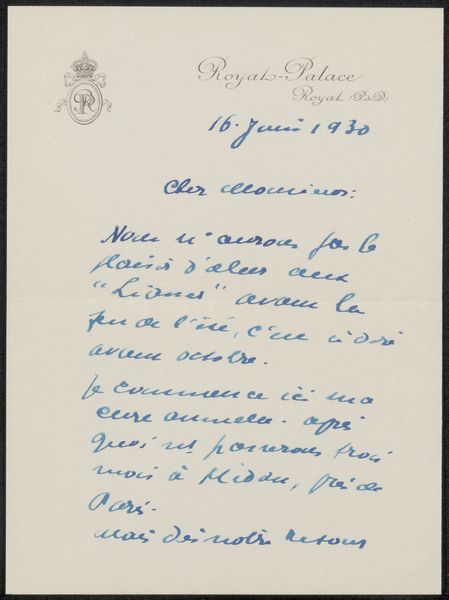 RP
Royal-Palace
Royat (P.deD)
16. Juin 1930
Cher Monsieur:
Nous n'aurons pas le
plaisir d'aller aux
"Lianes" avant la
fin de l'été, c'est à dire
avant octobre.
Je commence ici ma
cure annuelle. après
quoi ns. passerons trois
mois à Médan, près de
Paris.
Mais dès notre retour